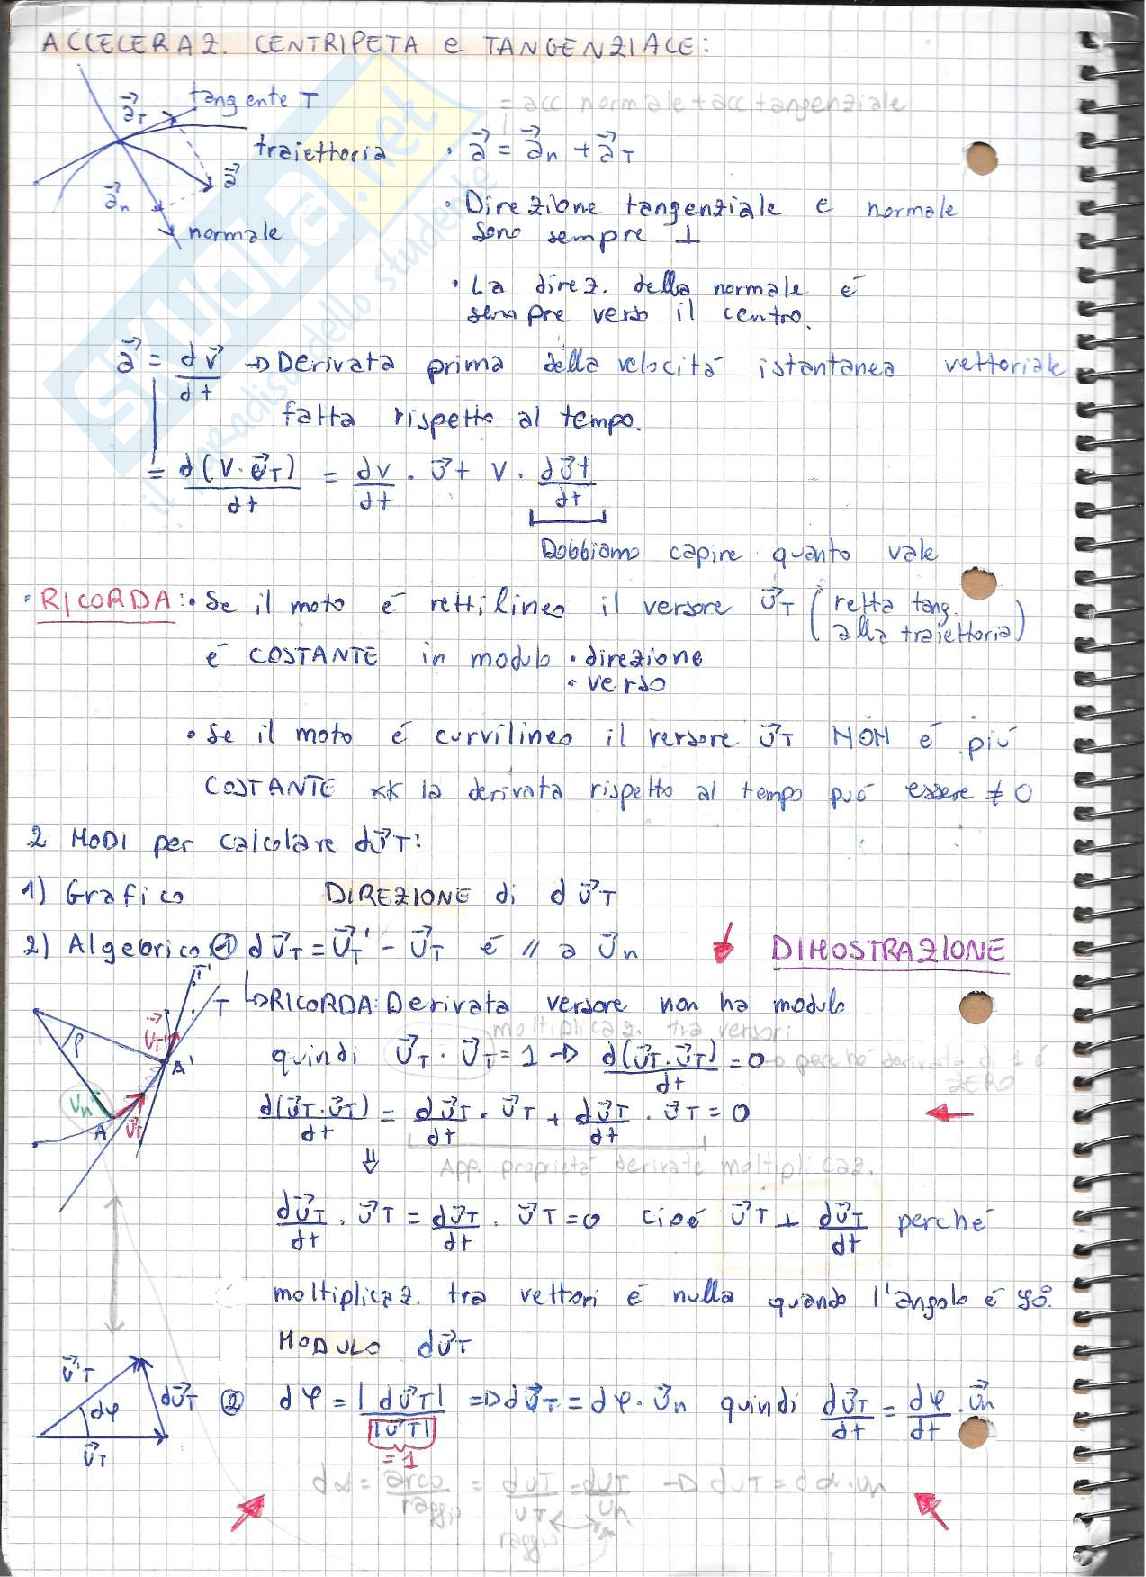 ACCELERAZ. CENTRIPETA e TANGENZIALE:
= acc normale + acc tangenziale
a⃗T tangente T
traiettoria
a⃗
a⃗n
normale
• a⃗ = a⃗n + a⃗T
• Direzione tangenziale e normale
sono sempre ⊥
• La direz. della normale é
sempre verso il centro.
a⃗ = dv⃗/dt → Derivata prima della velocitá istantanea vettoriale
fatta rispetto al tempo.
= d(V·u⃗T)/dt = dv/dt · u⃗t + V · du⃗t/dt
Dobbiamo capire quanto vale
• RICORDA: • Se il moto é rettilineo il versore u⃗T (retta tang. alla traiettoria)
é COSTANTE in modulo • direzione
• verso
• Se il moto é curvilineo il versore u⃗T NON é piú
COSTANTE xk la derivata rispetto al tempo puó essere ≠ 0
2 MODI per calcolare du⃗T:
1) Grafico DIREZIONE di du⃗T
2) Algebrico ① du⃗T = u⃗T' - u⃗T é // a u⃗n DIMOSTRAZIONE
T'
T ↳ RICORDA: Derivata versore non ha modulo
moltiplicaz. tra versori
quindi u⃗T · u⃗T = 1 → d(u⃗T·u⃗T)/dt = 0
ZERO
A'
Un
A
u⃗T
d(u⃗T·u⃗T)/dt = du⃗T/dt · u⃗T + du⃗T/dt · u⃗T = 0
App. proprietá derivate moltiplicaz.
du⃗T/dt · u⃗T = du⃗T/dt · u⃗T = 0 cioé u⃗T ⊥ du⃗T/dt perché
moltiplicaz. tra vettori é nulla quando l'angolo é 90°.
MODULO du⃗T
u⃗'T
du⃗T
dφ
u⃗T
② dφ = |du⃗T|/|u⃗T| ⇒ du⃗T = dφ · u⃗n quindi du⃗T/dt = dφ/dt · u⃗n
= 1
dα = arco/raggio = duT/uT = duT/un → duT = dα·un
raggio
SKUOLA.net
il paradiso dello studente